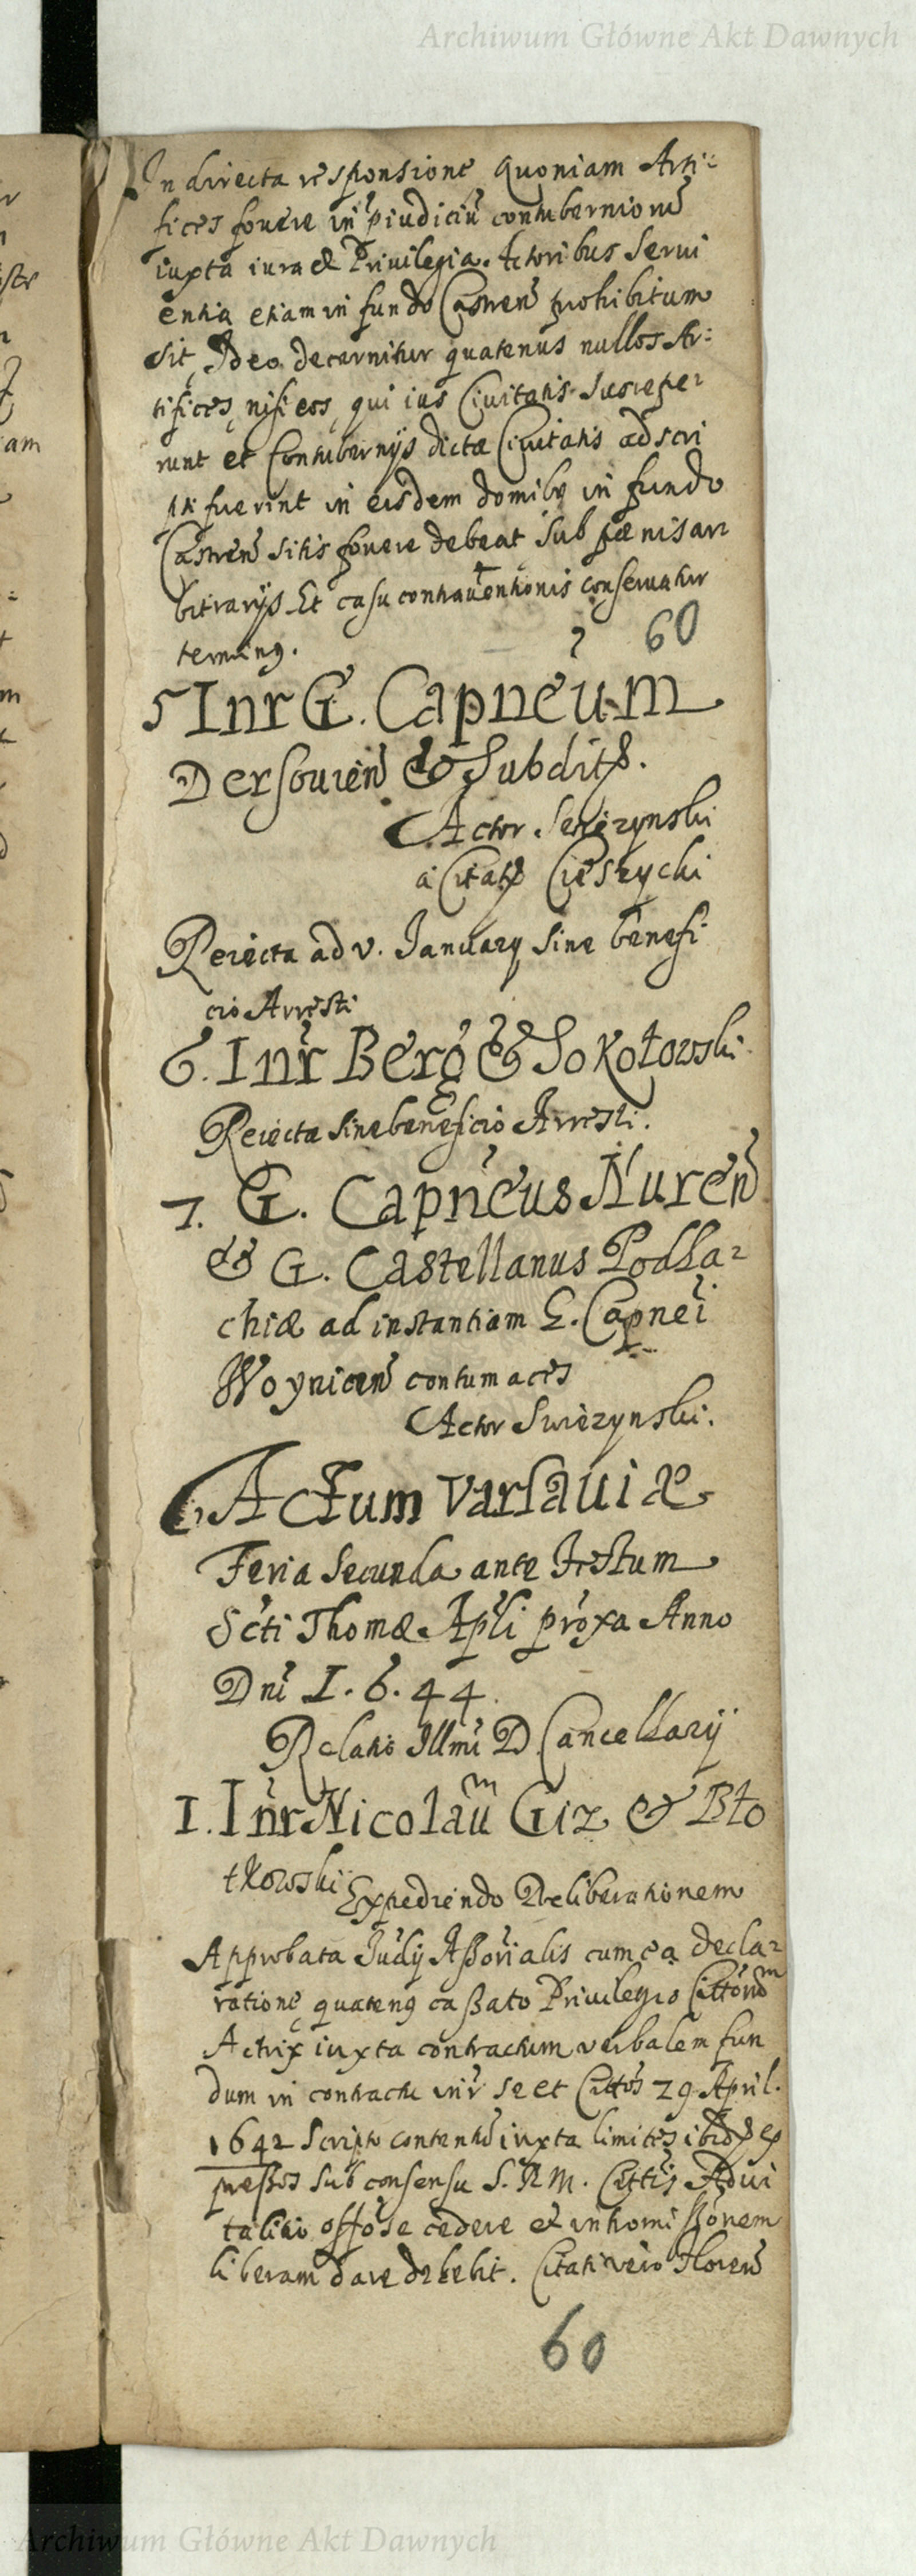 Archiwum Główne Akt Dawnych
In directa responsione Quoniam Arti:
fices fovere in p̃iudiciũ contuberniorũ
iuxta iura et Privilegia Actoribus servi
entia etiam in fundo Castreñ prohibitum
sit, Ideo decernitur quatenus nullos Ar:
tifices, nisi eos, qui ius Civitatis suscepe:
runt et Contubernijs dictæ Civitatis adscri
pti fuerint in eisdem domibꝰ in fundo
Castreñ sitis fovere debeat sub pænis ar:
bitrarijs Et casu contraventionis conservatur
terminꝰ.
60
5 Inr G. Capneum
Dersovieñ & Subdit.
Actor Swiezynski
a Citat Cieszycki
Reiecta ad v. January sine benefi
cio Arresti
6. Inr Berg & Sokołowski
Reiecta sine beneficio Arresti.
7. G. Capneus Nureñ
& G. Castellanus Podla:
chiæ ad instantiam G. Capnei
Woyniceñ contumaces
Actor Swiezynski.
Actum Varsaviæ
Feria secunda ante Festum
Scti Thomæ Apli proxa Anno
Dni 1.6.44.
Relatio Illmi D Cancellarij
1. Inr Nicolaũm Giz & Bło
tkowski Expediendo Deliberationem
Approbata Judij Assorialis cum ea decla:
ratione, quatenꝰ cassato Privilegio Cittorum
Actrix iuxta contractum verbalem fun
dum in contractu inr se et Cittos 29 April.
1642 scripto contentũ iuxta limites ibid ex
pressos sub consensu S. R. M. Cittis Advi
talitio offose cedere et intromissionem
liberam dare debebit. Citati vero Floreñ
60
Archiwum Główne Akt Dawnych